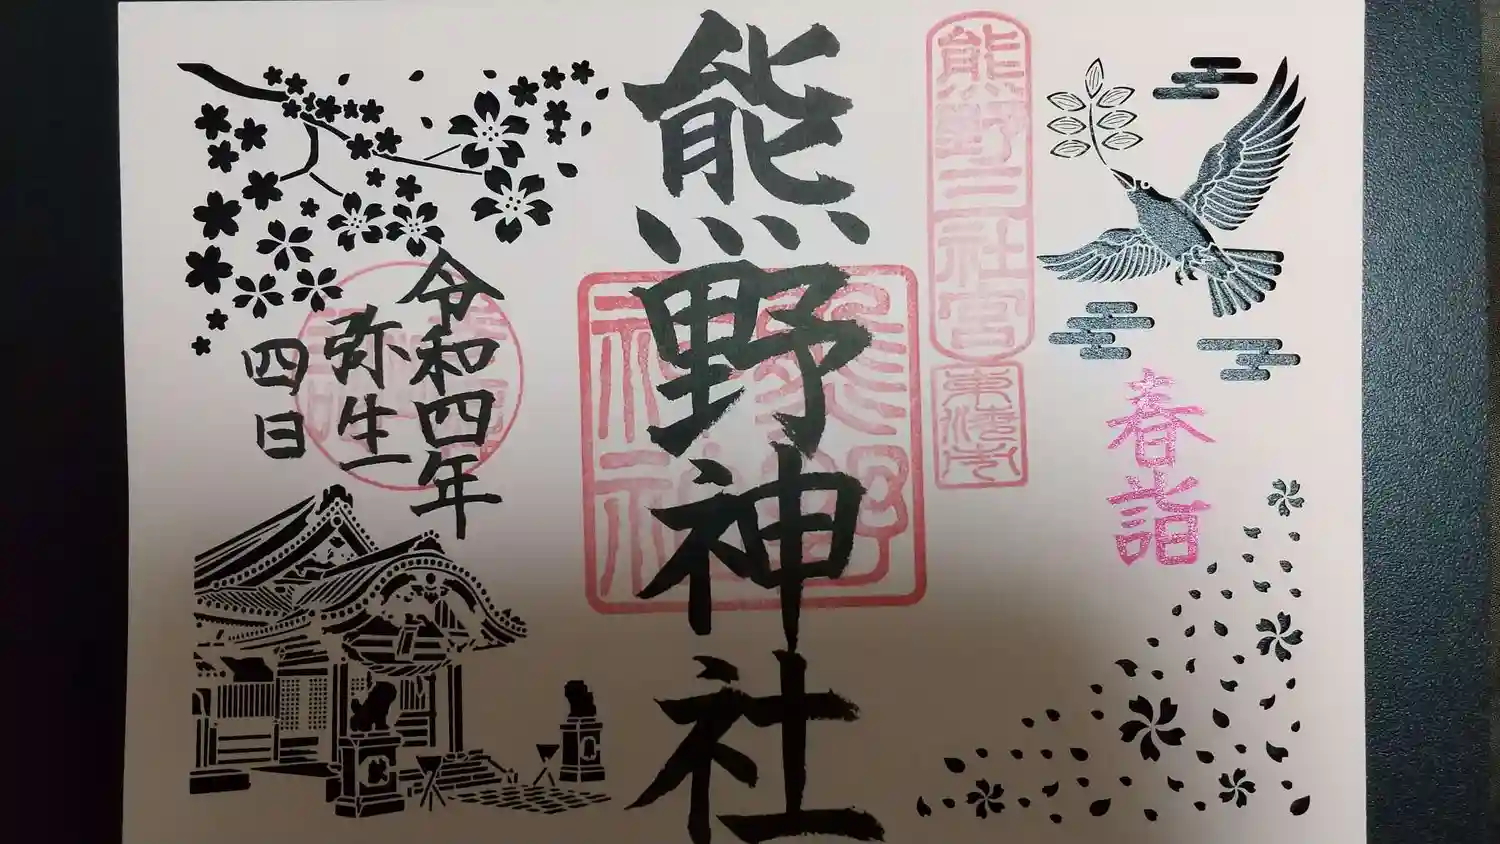 春詣
熊野三社宮
熊野神社
熊野神社
令和四年
弥生
四日